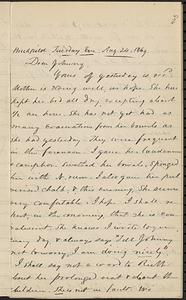 Buckfield Tuesday Eve Aug. 24. 1869
Dear Johnny
Yours of yesterday is rec'd.
Mother is doing well, we hope. She has
kept her bed all day, excepting about
½ an hour. She has not yet had as
many evacuations from her bowels as
she had yesterday. They were frequent
in the forenoon. I gave her laudanum
& camphor, bathed her bowels, sponged
her with
chalk, & this evening, she seems
very comfortable. I hope, I shall re-
port, in the morning, that she is con-
valescent. She knows I write to you
every day, & always says "Tell Johnny
not to worry, I am doing nicely."
I shall say not a word to Mother
about her prolonged visit & about the
children. She's not in fault. We